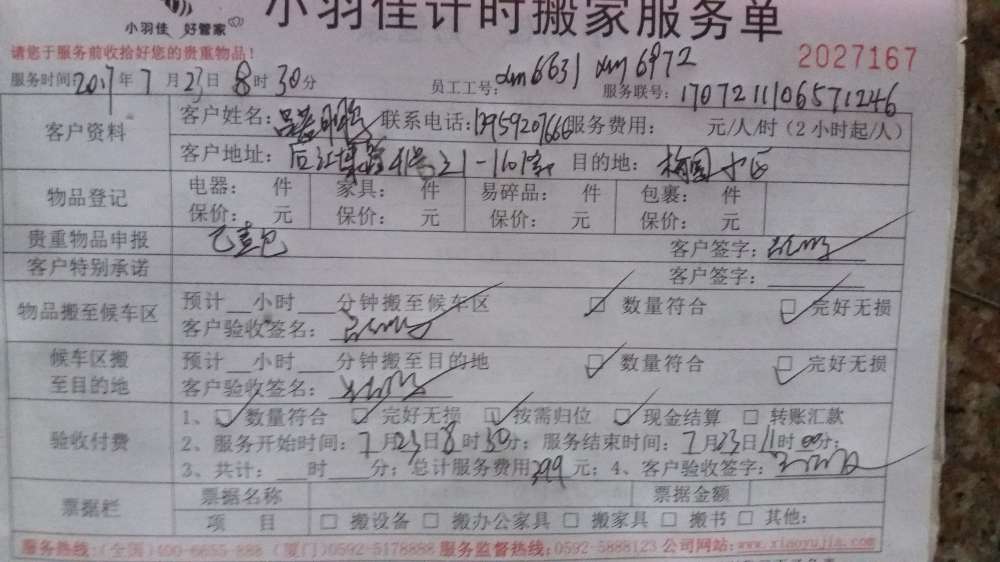 小羽佳 好管家 小羽佳计时搬家服务单
请您于服务前收拾好您的贵重物品! 2027167
服务时间2017年7月23日8时30分 员工工号:xm6631 xm6972 服务联号:1707211106571246
客户资料 客户姓名: 联系电话:13959207666 服务费用: 元/人/时(2小时起/人)
客户地址: 后江埭路41号21-1101室 目的地: 梅园小区
物品登记 电器: 件 家具: 件 易碎品: 件 包裹: 件
保价: 元 保价: 元 保价: 元 保价: 元
贵重物品申报 客户签字:
客户特别承诺 客户签字:
物品搬至候车区 预计__小时___分钟搬至候车区 ☑ 数量符合 ☑ 完好无损
客户验收签名:
候车区搬至目的地 预计__小时___分钟搬至目的地 ☑ 数量符合 ☑ 完好无损
客户验收签名:
验收付费 1、☑ 数量符合 ☑ 完好无损 ☑ 按需归位 ☑ 现金结算 □ 转账汇款
2、服务开始时间:7月23日8时30分;服务结束时间:7月23日11时00分;
3、共计:___时___分;总计服务费用299元;4、客户验收签字:
票据栏 票据名称 票据金额
项 目 □ 搬设备 □ 搬办公家具 □ 搬家具 □ 搬书 □ 其他:
服务热线:(全国)400-6655-888 (厦门)0592-5178888 服务监督热线:0592-5888123 公司网站:www.xiaoyujia.com